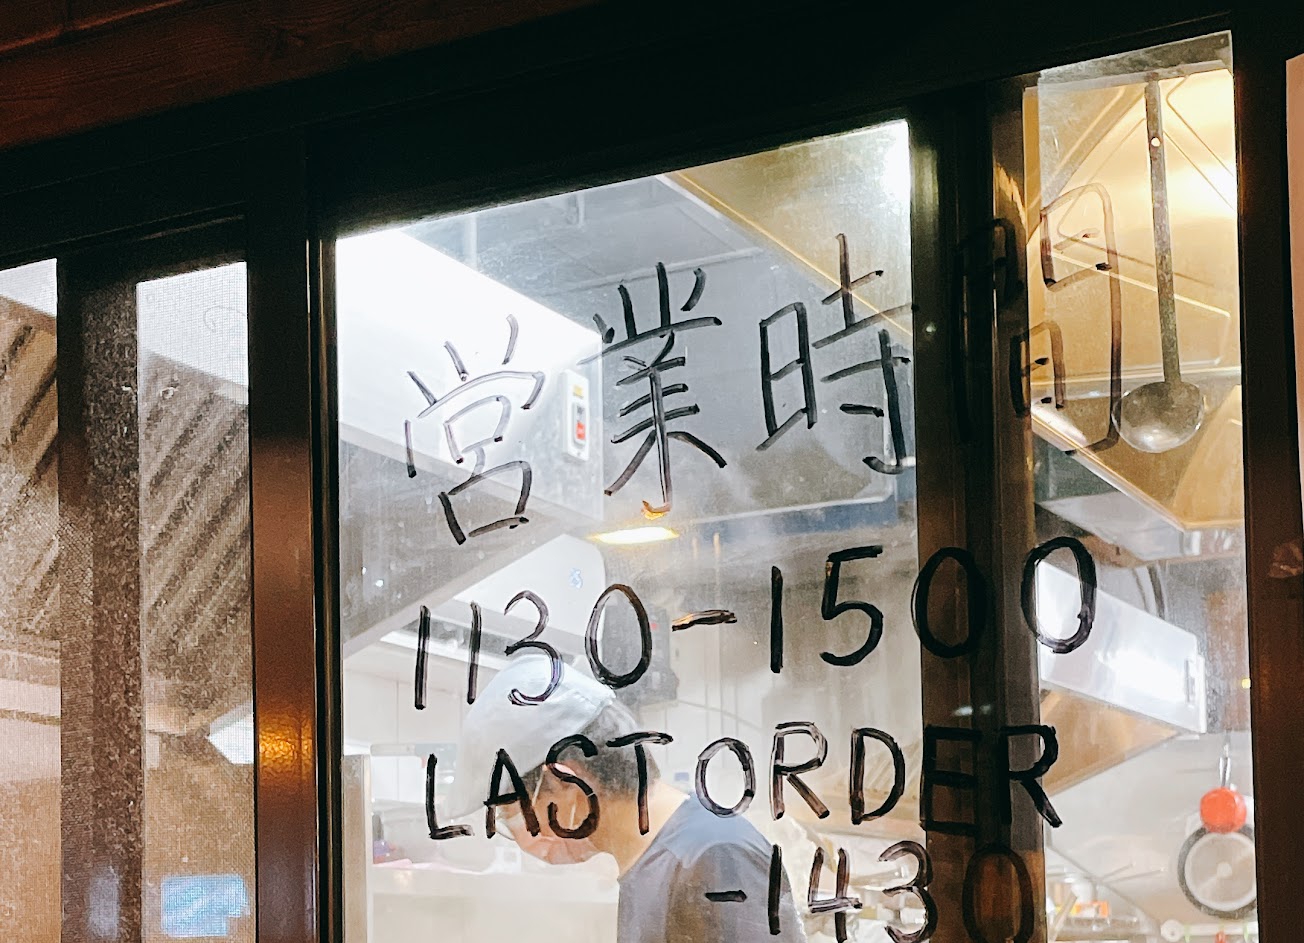 営業時間
1130-1500
LAST ORDER
-1430